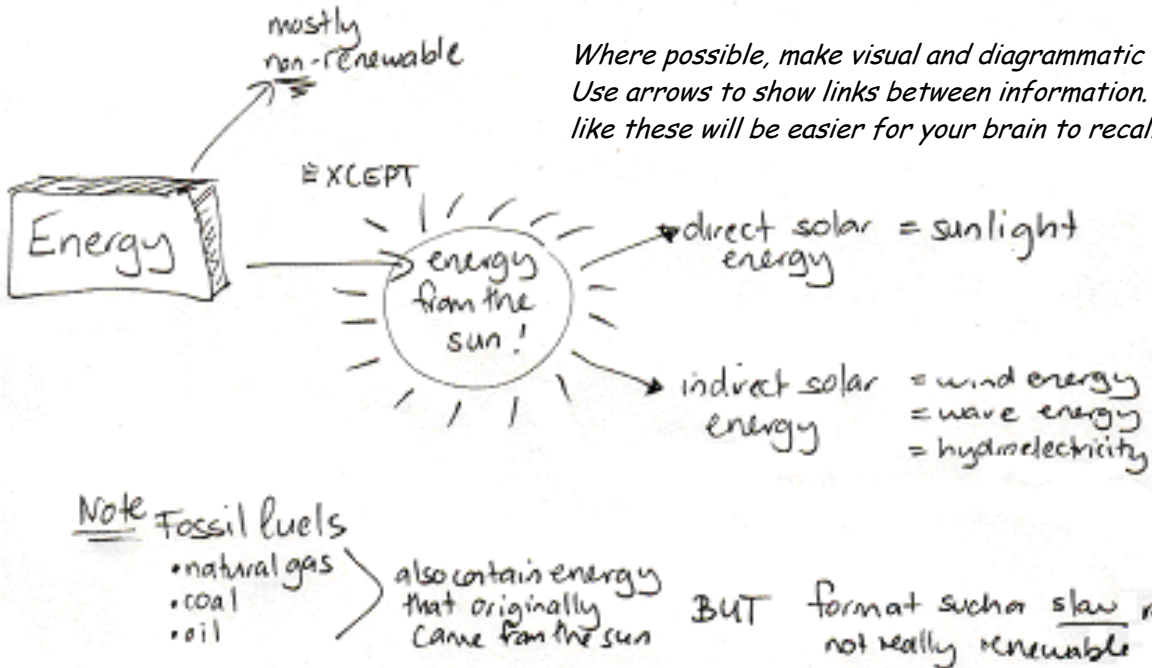 mostly
non-renewable
Where possible, make visual and diagrammatic
Use arrows to show links between information.
like these will be easier for your brain to recal
EXCEPT
Energy
energy
from the
sun!
direct solar = sunlight
energy
indirect solar = wind energy
energy = wave energy
= hydroelectricity
Note Fossil fuels
• natural gas
• coal
• oil
also contain energy
that originally
came from the sun
BUT
format such a slow
not really renewable